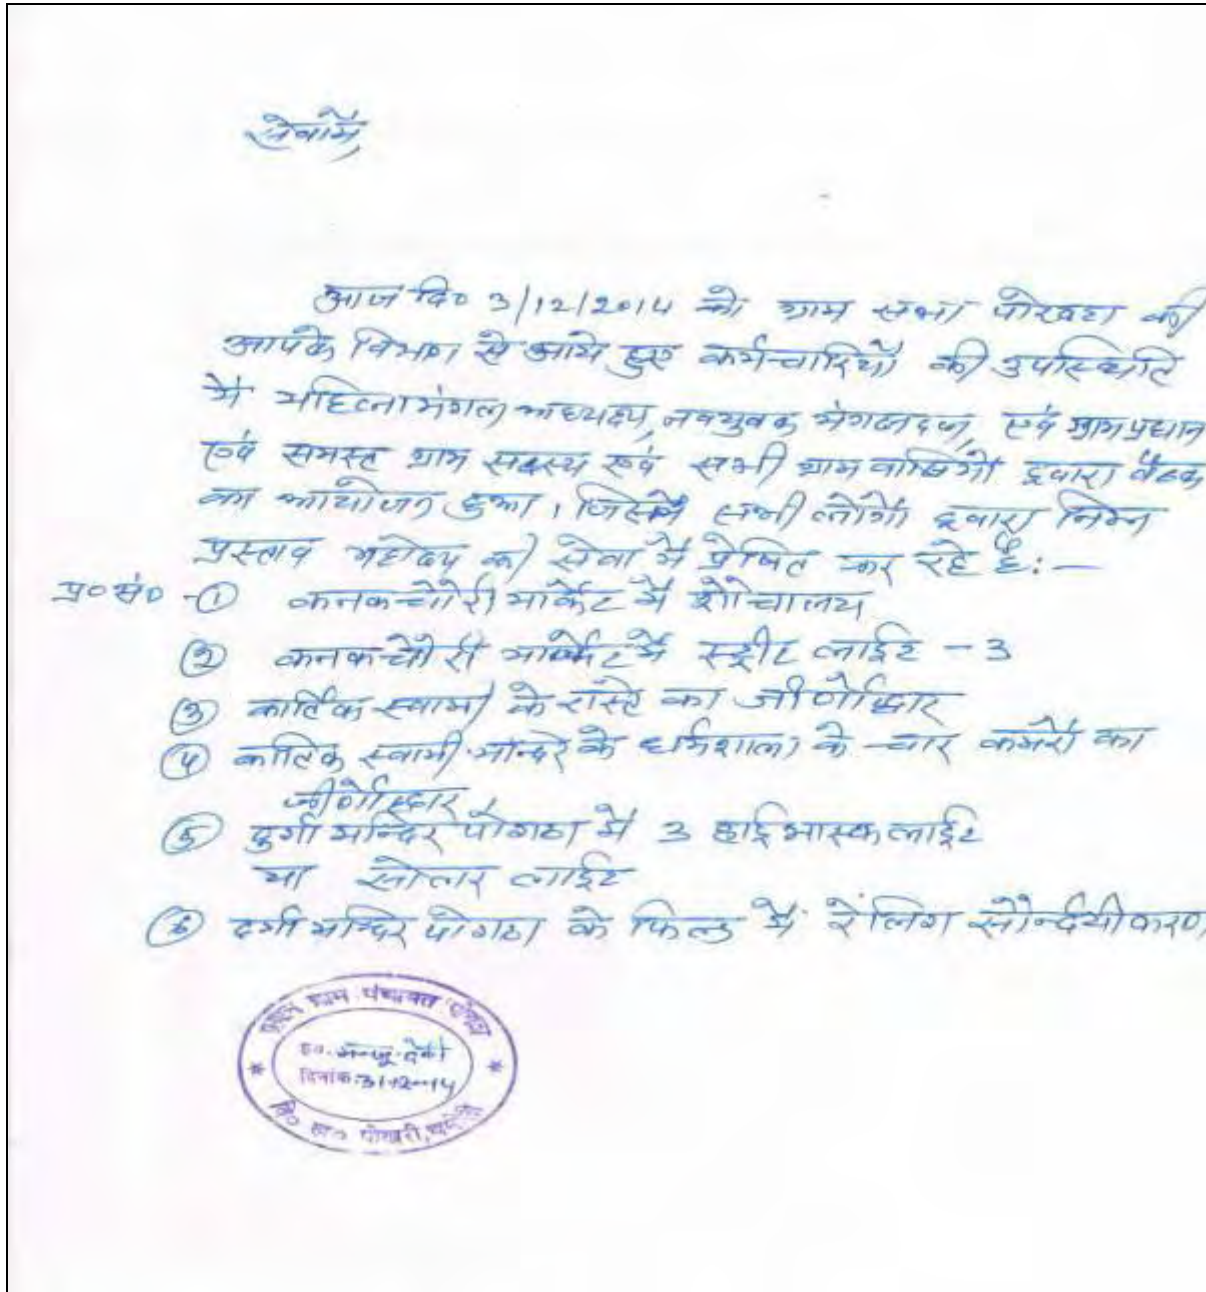 सेवामें,
आज दि० 3/12/2014 को ग्राम सभा पोखठा की
आपके विभाग से आये हुए कर्मचारियों की उपस्थिति
में महिलामंगल अध्यक्ष, नवयुवक मंगलदल, एवं ग्रामप्रधान
एवं समस्त ग्राम सदस्य एवं सभी ग्राम वासियों द्वारा बैठक
का आयोजन हुआ। जिसमें सभी लोगों द्वारा निम्न
प्रस्ताव महोदय की सेवा में प्रेषित कर रहे हैं:—
प्र०सं० - ① कनकचौरी मार्केट में शौचालय
② कनकचौरी मार्केट में स्ट्रीट लाईट - 3
③ कार्तिक स्वामी के रास्ते का जीर्णोद्धार
④ कार्तिक स्वामी मन्दिर के धर्मशाला के चार कमरों का
जीर्णोद्धार,
⑤ दुर्गा मन्दिर पोगठा में 3 हाई मास्क लाईट
या सोलर लाईट
⑥ दुर्गा मन्दिर पोगठा के फिल्ड में रेलिंग सौन्दर्यीकरण
ग्राम पंचायत
ह०. मन्जू देवी
दिनांक: 3-12-14
वि० ख० पोखरी, चमोली